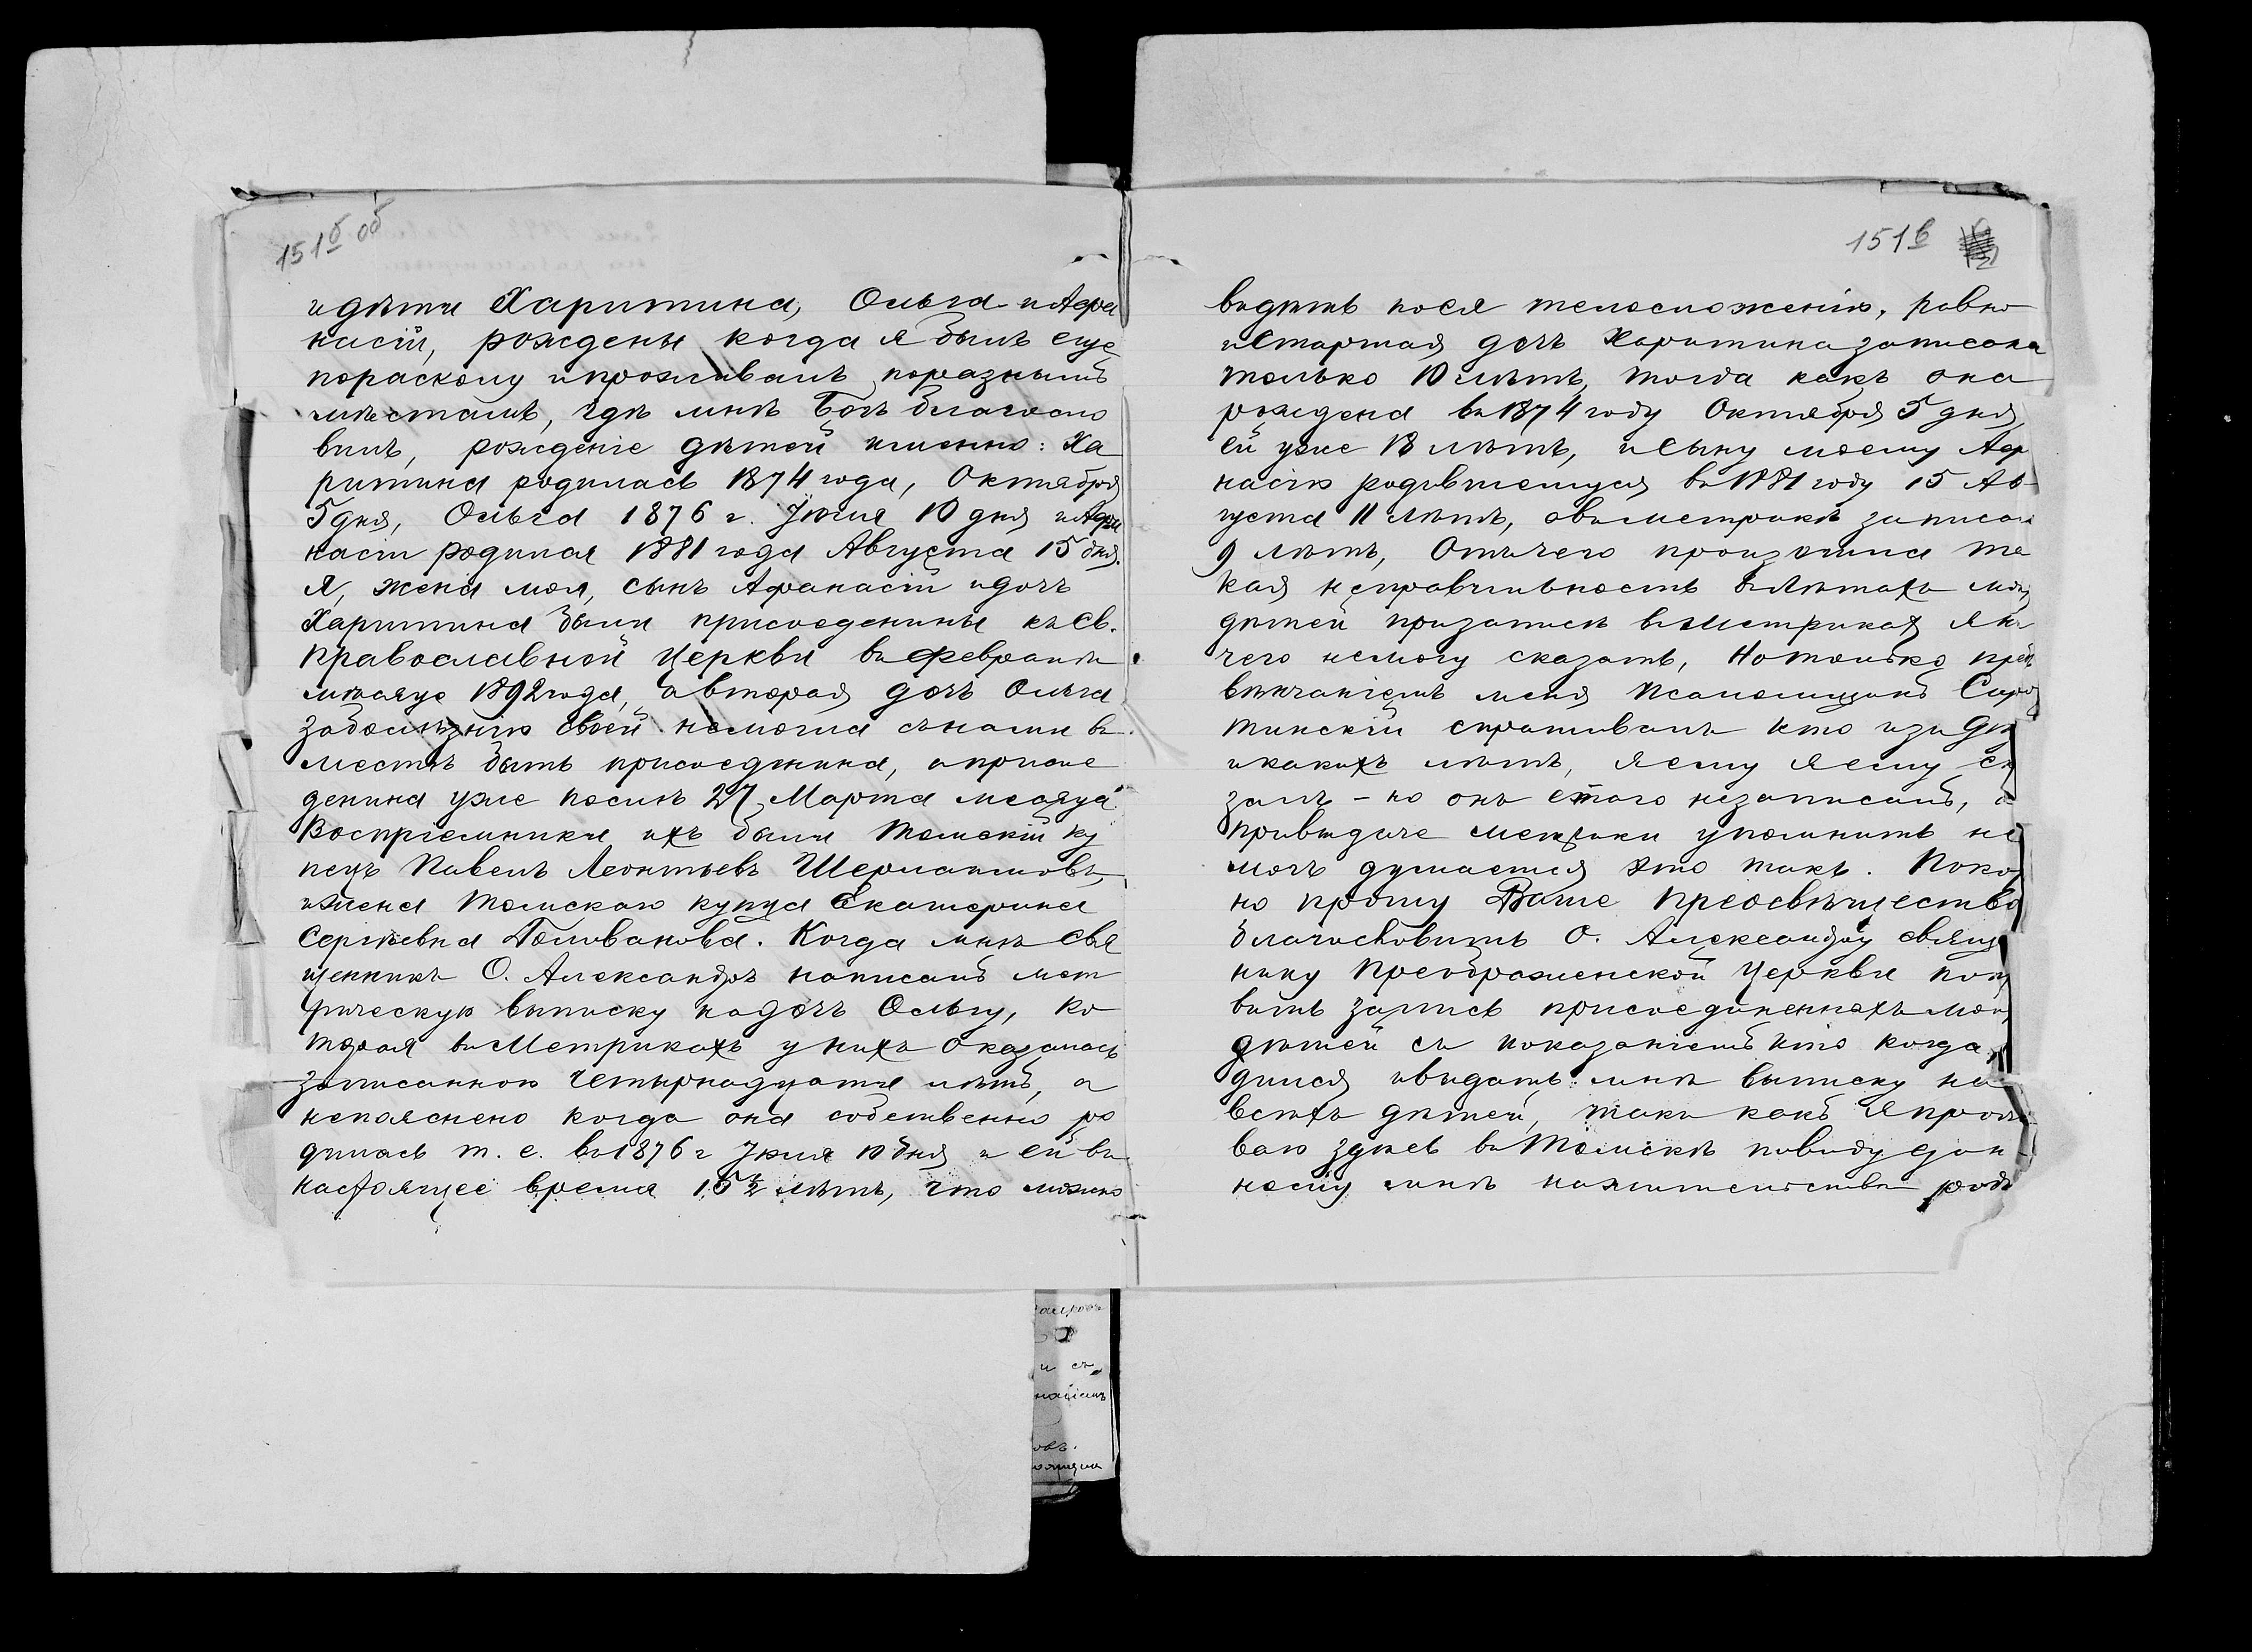 151б об
и дѣти Харитина, Ольга и Афа
насiй, рождены когда я былъ еще
пораскому и проживалъ поразнымъ
мѣстамъ, гдѣ мнѣ Богъ благосло
вилъ, рожденiе дѣтей именно: Ха
ритина родилась 1874 года, Октября
5 дня, Ольга 1876 г. Iюля 10 дня и Афа
насiй родился 1881 года Августа 15 дня.
Я, жена моя, сынъ Афанасiй и дочъ
Харитина были присоеденины къ Св.
Православной Церкви въ Февралѣ
мѣсяцѣ 1892 года, а вторая дочъ Ольга
заболѣзнiю своей немогла снами в
местѣ быть присоединина, а присое
денина уже послѣ 27 Марта месяца.
Воспрiемники ихъ были Томскiй ку
пецъ Павелъ Леонтьевъ
и жена Томскаго купца Екатерина
Сергѣевна Голованова. Когда мнѣ Свя
щенникъ О. Александръ написалъ мет
рическую выписку на дочъ Ольгу, ко
торая въ Метрикахъ у нихъ оказалась
записанною Четырнадцати лѣтъ, а
непояснено когда она собственно ро
дилась т. е. въ 1876 г Iюля 10 дня и ей въ
настоящее время 15½ лѣтъ, что можно
151в
видѣть поея телосложенiю, равно
и Старшая дочъ Харитина записана
только 10 лѣтъ, тогда какъ она
рождена въ 1874 году Октября 5 дня,
ей уже 18 лѣтъ, и Сыну моему Афа
насiю родившемуся въ 1881 году 15 Ав
густа 11 лѣтъ, а въ метрикѣ записан
9 лѣтъ, Отъ чего произошла та
кая неправильность въ Лѣтахъ мои
дѣтей при записѣ въ Метриках я ни
чего немогу сказать, Но только пред
вѣнчанiемъ меня Псаломщикъ Сиро
тинскiй спрашивалъ кто изъ дѣ
и какихъ лѣтъ, я ему я ему ск
залъ – но онъ етаго незаписалъ, а
привыдаче метрики упомнить не
могъ думается это такъ. Поко
но прошу Ваше Преосвѣщество
благословить О. Александру Свящ
нику Преображенской Церкви поп
вить записъ присоединенныхъ мои
дѣтей съ показанiемъ кто когда р
дился и выдать мнѣ выписку на
всѣхъ дѣтей, такъ какъ я прожи
ваю здѣсь въ Томскѣ повиду
мнѣ